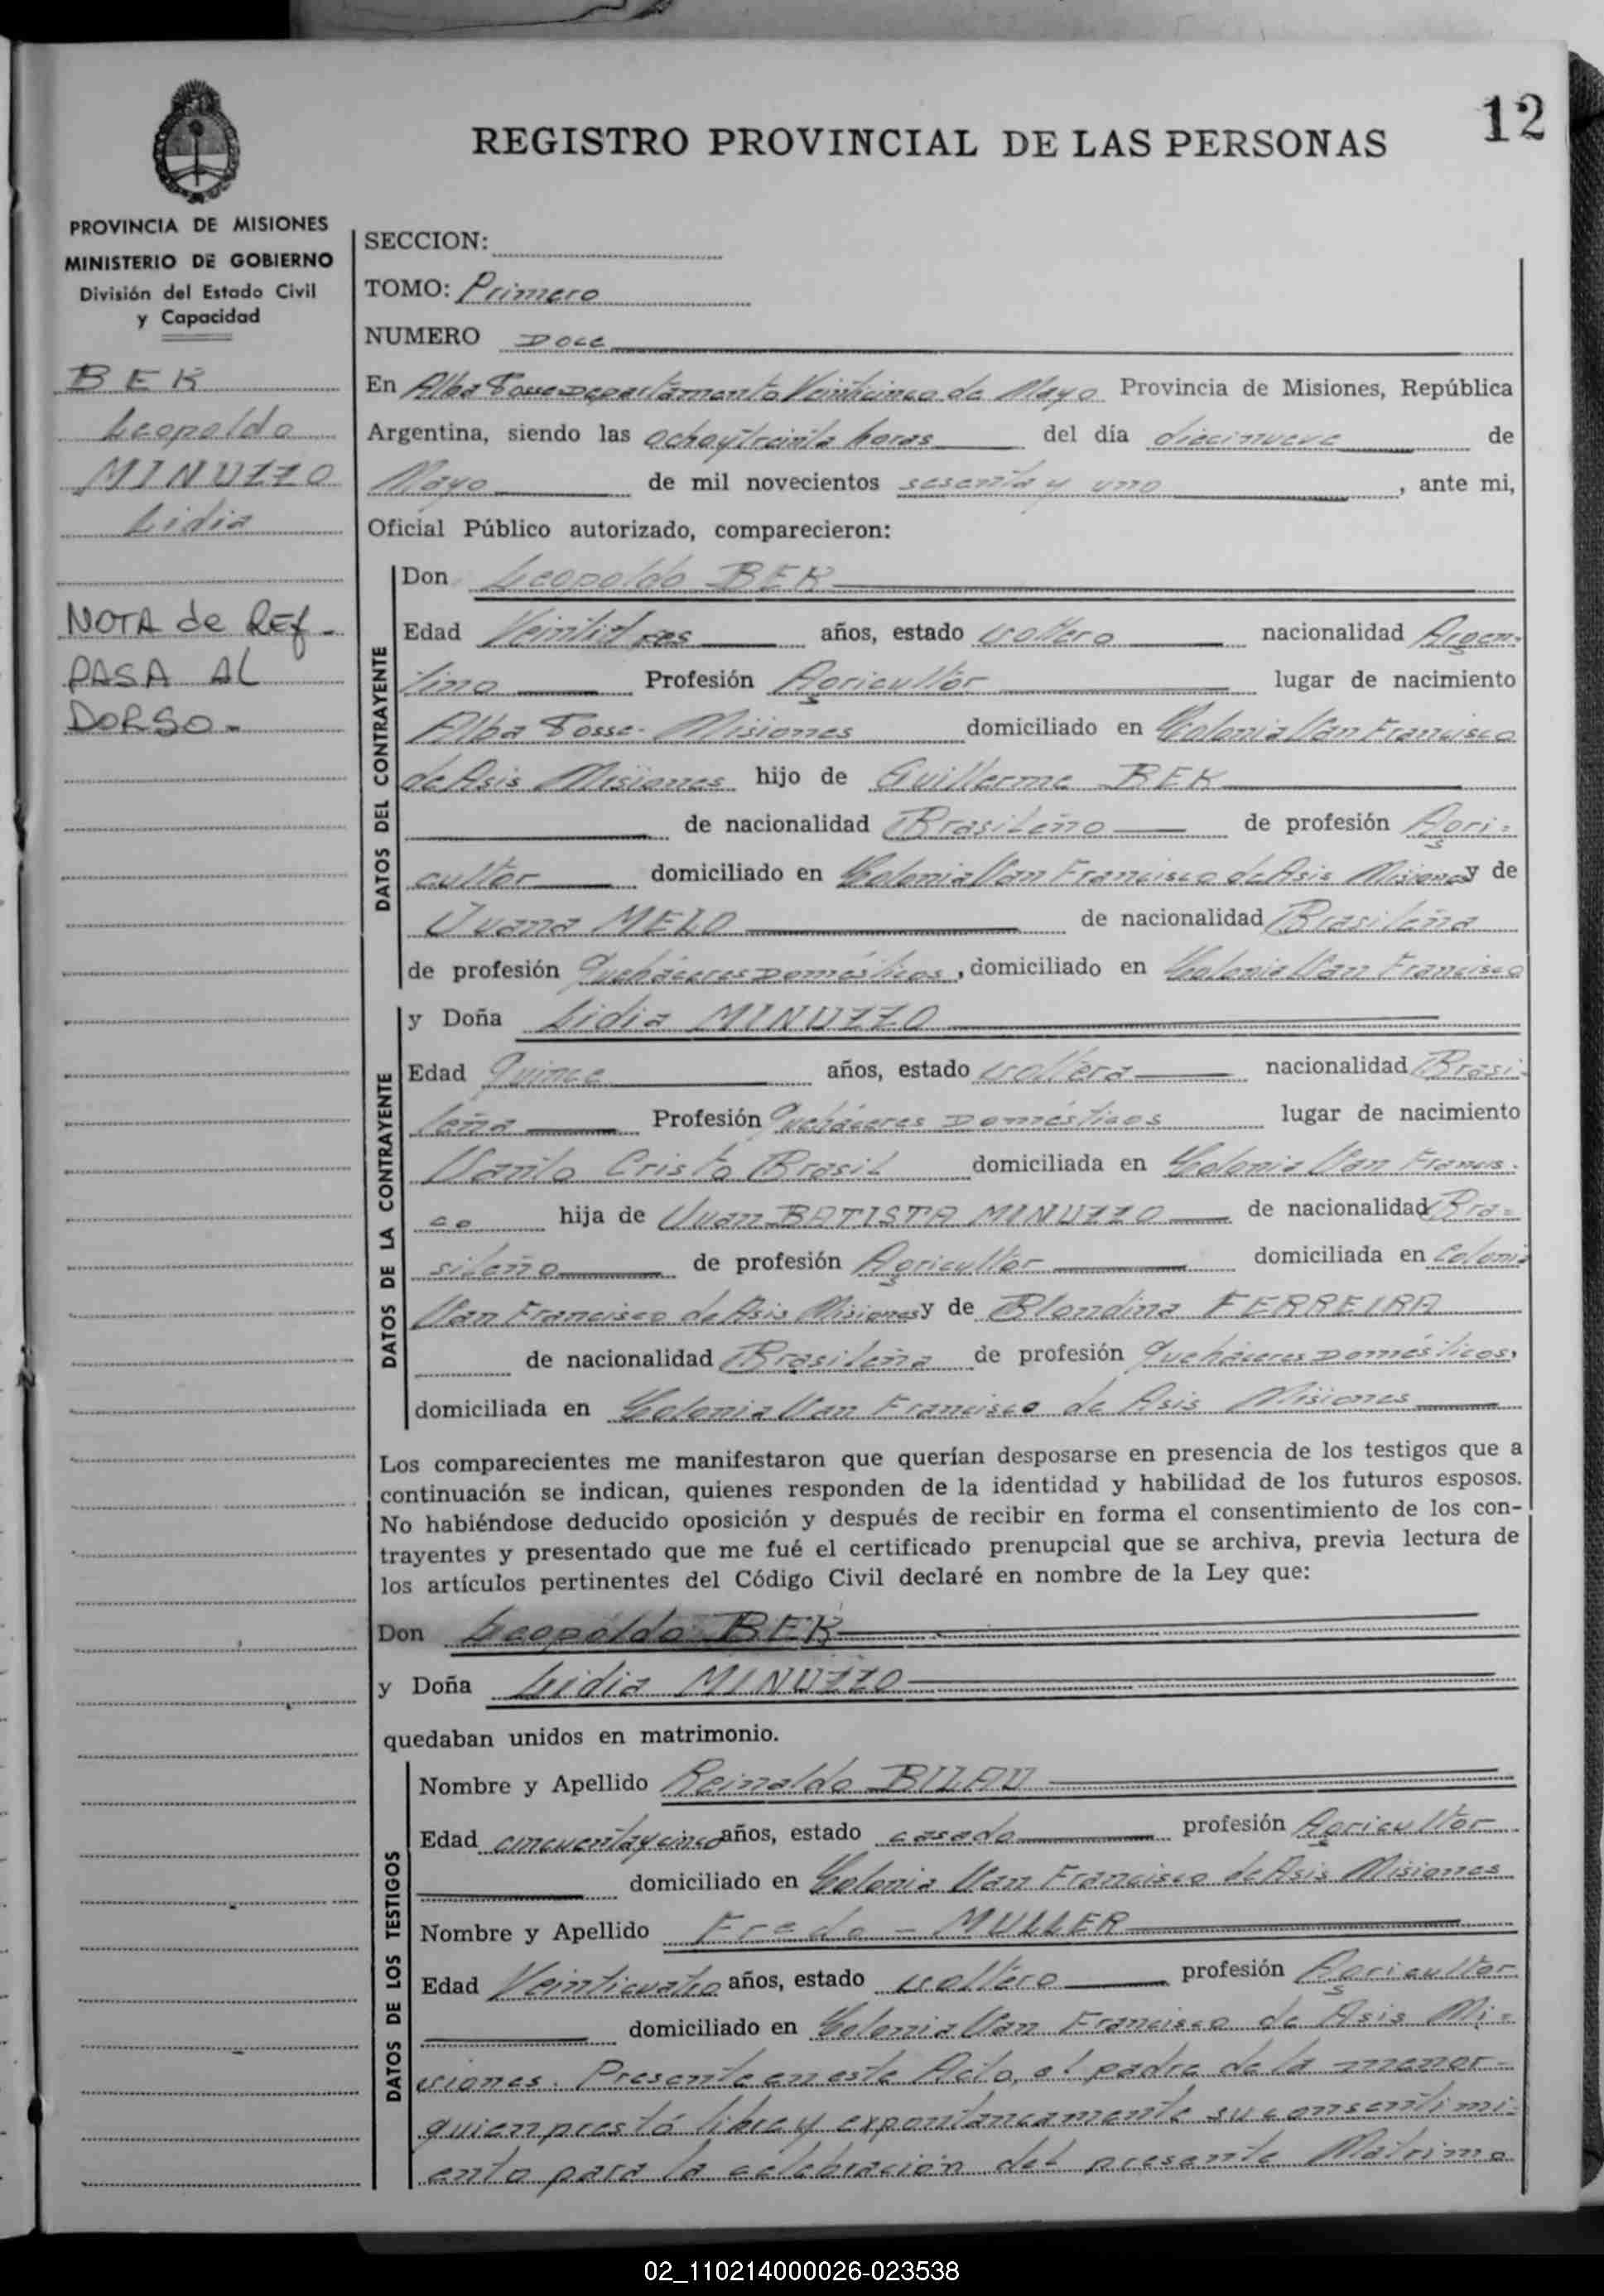 12
REGISTRO PROVINCIAL DE LAS PERSONAS
PROVINCIA DE MISIONES
MINISTERIO DE GOBIERNO
División del Estado Civil
y Capacidad
BEK
Leopoldo
MINUZZO
Lidia
NOTA de REf -
PASA AL
DORSO -
SECCION:
TOMO: Primero
NUMERO Doce
En Alba Posse Departamento Veinticinco de Mayo Provincia de Misiones, República
Argentina, siendo las ocho y treinta horas del día diecinueve de
Mayo de mil novecientos sesenta y uno, ante mi,
Oficial Público autorizado, comparecieron:
DATOS DEL CONTRAYENTE
Don Leopoldo BEK
Edad Veintitres años, estado soltero nacionalidad Argen-
tino Profesión Agricultor lugar de nacimiento
Alba Posse - Misiones domiciliado en Colonia San Francisco
de Asis Misiones hijo de Guillermo BEK
de nacionalidad Brasileño de profesión Agri-
cultor domiciliado en Colonia San Francisco de Asis Misiones y de
Juana MELO de nacionalidad Brasileña
de profesión Quehaceres Domésticos, domiciliado en Colonia San Francisco
DATOS DE LA CONTRAYENTE
y Doña Lidia MINUZZO
Edad Quince años, estado soltera nacionalidad Brasi-
leña Profesión Quehaceres Domésticos lugar de nacimiento
Santo Cristo Brasil domiciliada en Colonia San Francis-
co hija de Juan BATISTA MINUZZO de nacionalidad Bra-
sileño de profesión Agricultor domiciliada en Colonia
San Francisco de Asis Misiones y de Blondina FERREIRA
de nacionalidad Brasileña de profesión Quehaceres Domésticos,
domiciliada en Colonia San Francisco de Asis Misiones
Los comparecientes me manifestaron que querían desposarse en presencia de los testigos que a
continuación se indican, quienes responden de la identidad y habilidad de los futuros esposos.
No habiéndose deducido oposición y después de recibir en forma el consentimiento de los con-
trayentes y presentado que me fué el certificado prenupcial que se archiva, previa lectura de
los artículos pertinentes del Código Civil declaré en nombre de la Ley que:
Don Leopoldo BEK
y Doña Lidia MINUZZO
quedaban unidos en matrimonio.
DATOS DE LOS TESTIGOS
Nombre y Apellido Reinaldo BILAU
Edad cincuenta y cinco años, estado casado profesión Agricultor
domiciliado en Colonia San Francisco de Asis Misiones
Nombre y Apellido Fredo - MULLER
Edad Veinticuatro años, estado soltero profesión Agricultor
domiciliado en Colonia San Francisco de Asis Mi-
siones. Presente en este Acto, el padre de la menor -
quien prestó libre y expontaneamente su consentimi-
ento para la celebración del presente Matrimo
02_110214000026-023538